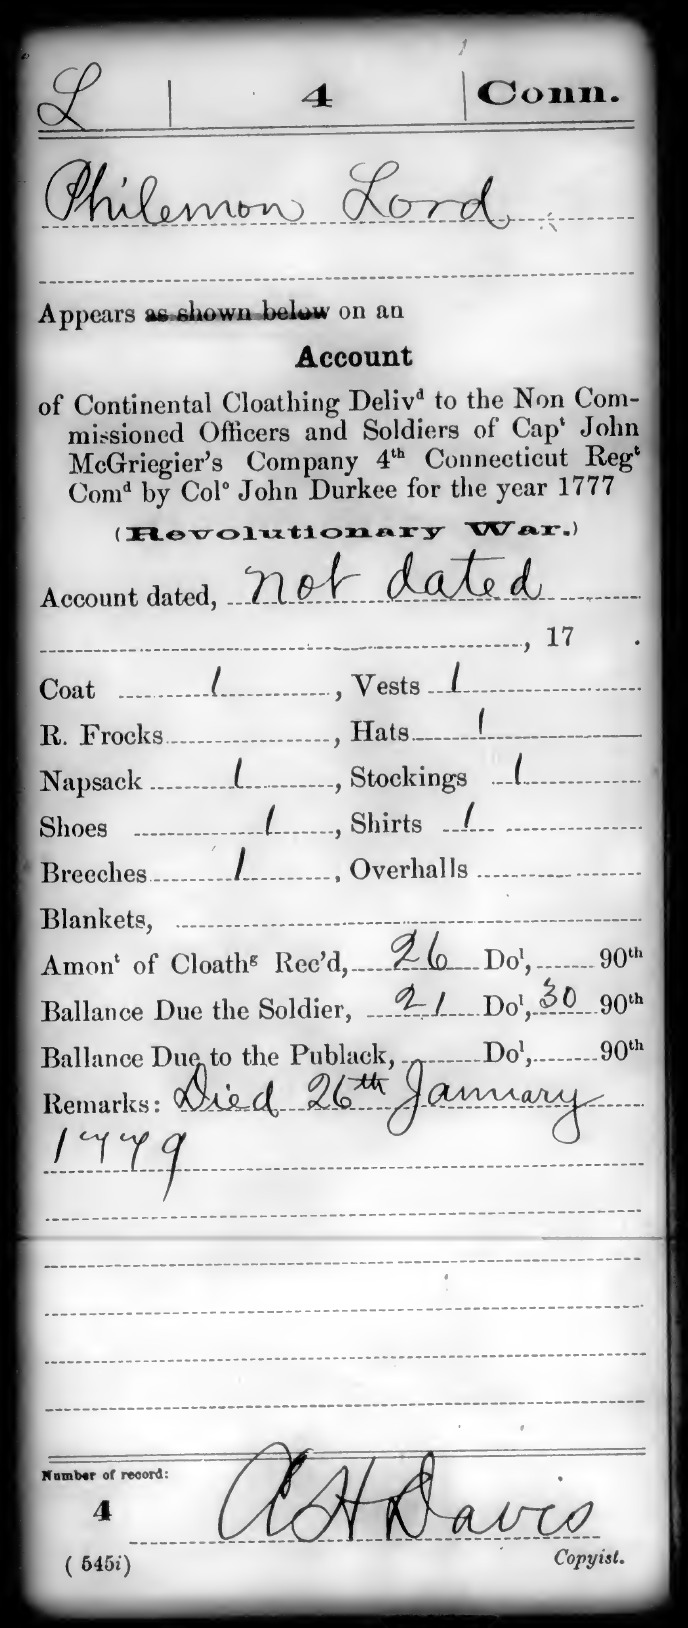 L 4 Conn.
Philemon Lord
Appears as shown below on an
Account
of Continental Cloathing Delivᵈ to the Non Com-
missioned Officers and Soldiers of Capᵗ John
McGriegier's Company 4ᵗʰ Connecticut Regᵗ
Comᵈ by Colᵒ John Durkee for the year 1777
(Revolutionary War.)
Account dated, not dated
, 17 .
Coat 1, Vests 1
R. Frocks, Hats 1
Napsack 1, Stockings 1
Shoes 1, Shirts 1
Breeches 1, Overhalls
Blankets,
Amonᵗ of Cloathᵍ Rec'd, 26 Doˡ, 90ᵗʰ
Ballance Due the Soldier, 21 Doˡ, 30 90ᵗʰ
Ballance Due to the Publack, Doˡ, 90ᵗʰ
Remarks: Died 26th January
1779
Number of record:
4
A H Davis
(545i) Copyist.